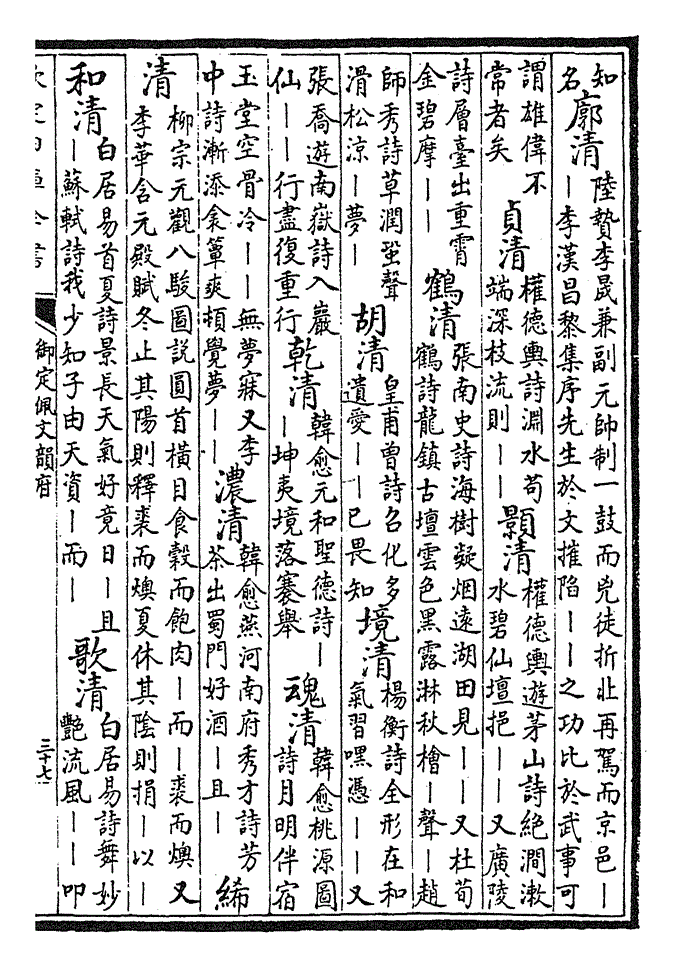 知名廓清陸贄李晟兼副元帥制一鼓而兇徒折北再駕而京邑｜｜李漢昌黎集序先生於文摧陷｜｜之功比於武事可
謂雄偉不常者矣貞清權德輿詩淵水苟端深枝流則｜｜顥清權德輿遊茅山詩絶澗漱水碧仙壇挹｜｜又廣陵
詩層臺出重霄金碧摩｜｜鶴清張南史詩海樹凝烟遠湖田見｜｜又杜荀鶴詩龍鎮古壇雲色黑露淋秋檜｜聲｜趙
師秀詩草潤蛩聲滑松涼｜夢｜胡清皇甫曾詩召化多遺愛｜｜已畏知境清楊衡詩全形在和氣習嘿憑｜｜又
張喬遊南嶽詩入巖仙｜｜行盡復重行乾清韓愈元和聖德詩｜｜坤夷境落褰舉魂清韓愈桃源圖詩月明伴宿
玉堂空骨冷｜｜無夢寐又李中詩漸添衾簟爽頓覺夢｜｜濃清韓愈燕河南府秀才詩芳茶出蜀門好酒｜且｜絺
清柳宗元觀八駿圖説圓首橫目食穀而飽肉｜而｜裘而燠又李華含元殿賦冬止其陽則釋裘而燠夏休其陰則捐｜以｜
和清白居易首夏詩景長天氣好竟日｜且｜蘇軾詩我少知子由天資｜而｜歌清白居易詩舞妙艷流風｜｜叩
欽定四庫全書
御定佩文韻府
三十七